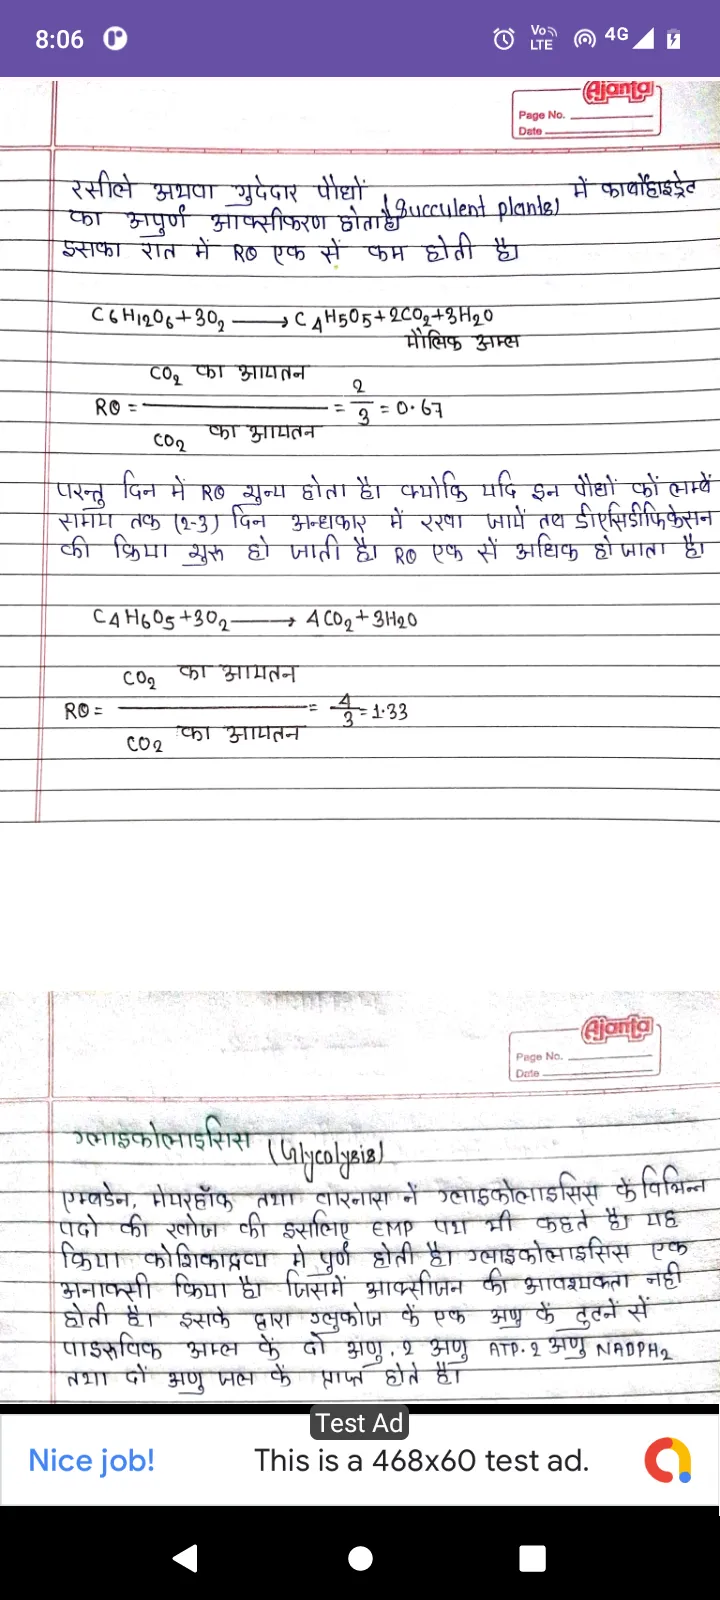 8:06
Vo LTE
4G
Ajanta
Page No.
Date
रसीले अथवा गुदेदार पौधों (Succulent plants) में कार्बोहाइड्रेट
का अपुर्ण आक्सीकरण होता है
इसका रात में RQ एक सें कम होती है।
C6H12O6+3O2 → C4H5O5+2CO2+3H2O
मौलिक अम्ल
CO2 का आयतन
RQ = = 2/3 = 0.67
CO2 का आयतन
परन्तु दिन में RQ शुन्य होता है। क्योकि यदि इन पौधों कों लम्बें
समय तक (2-3) दिन अन्धकार में रखा जायें तब डीएसिडीफिकेसन
की क्रिया शुरू हो जाती है। RQ एक सें अधिक हो जाता है।
C4H6O5+3O2 → 4CO2+3H2O
CO2 का आयतन
RQ = = 4/3 = 1.33
CO2 का आयतन
Ajanta
Page No.
Date
ग्लाइकोलाइसिस (Glycolysis)
एम्बडेन, मेयरहॉक तथा पारनास नें ग्लाइकोलाइसिस कें विभिन्न
पदो की खोज की इसलिए EMP पथ भी कहते है। यह
क्रिया कोशिकाद्रव्य मे पुर्ण होती है। ग्लाइकोलाइसिस एक
अनाक्सी क्रिया है। जिसमें आक्सीजन की आवश्यकता नही
होती है। इसके द्वारा ग्लुकोज कें एक अणु कें टुटनें सें
पाइरूविक अम्ल कें दो अणु, 2 अणु ATP. 2 अणु NADPH2
तथा दों अणु जल कें प्राप्त होते है।
Test Ad
Nice job! This is a 468x60 test ad.